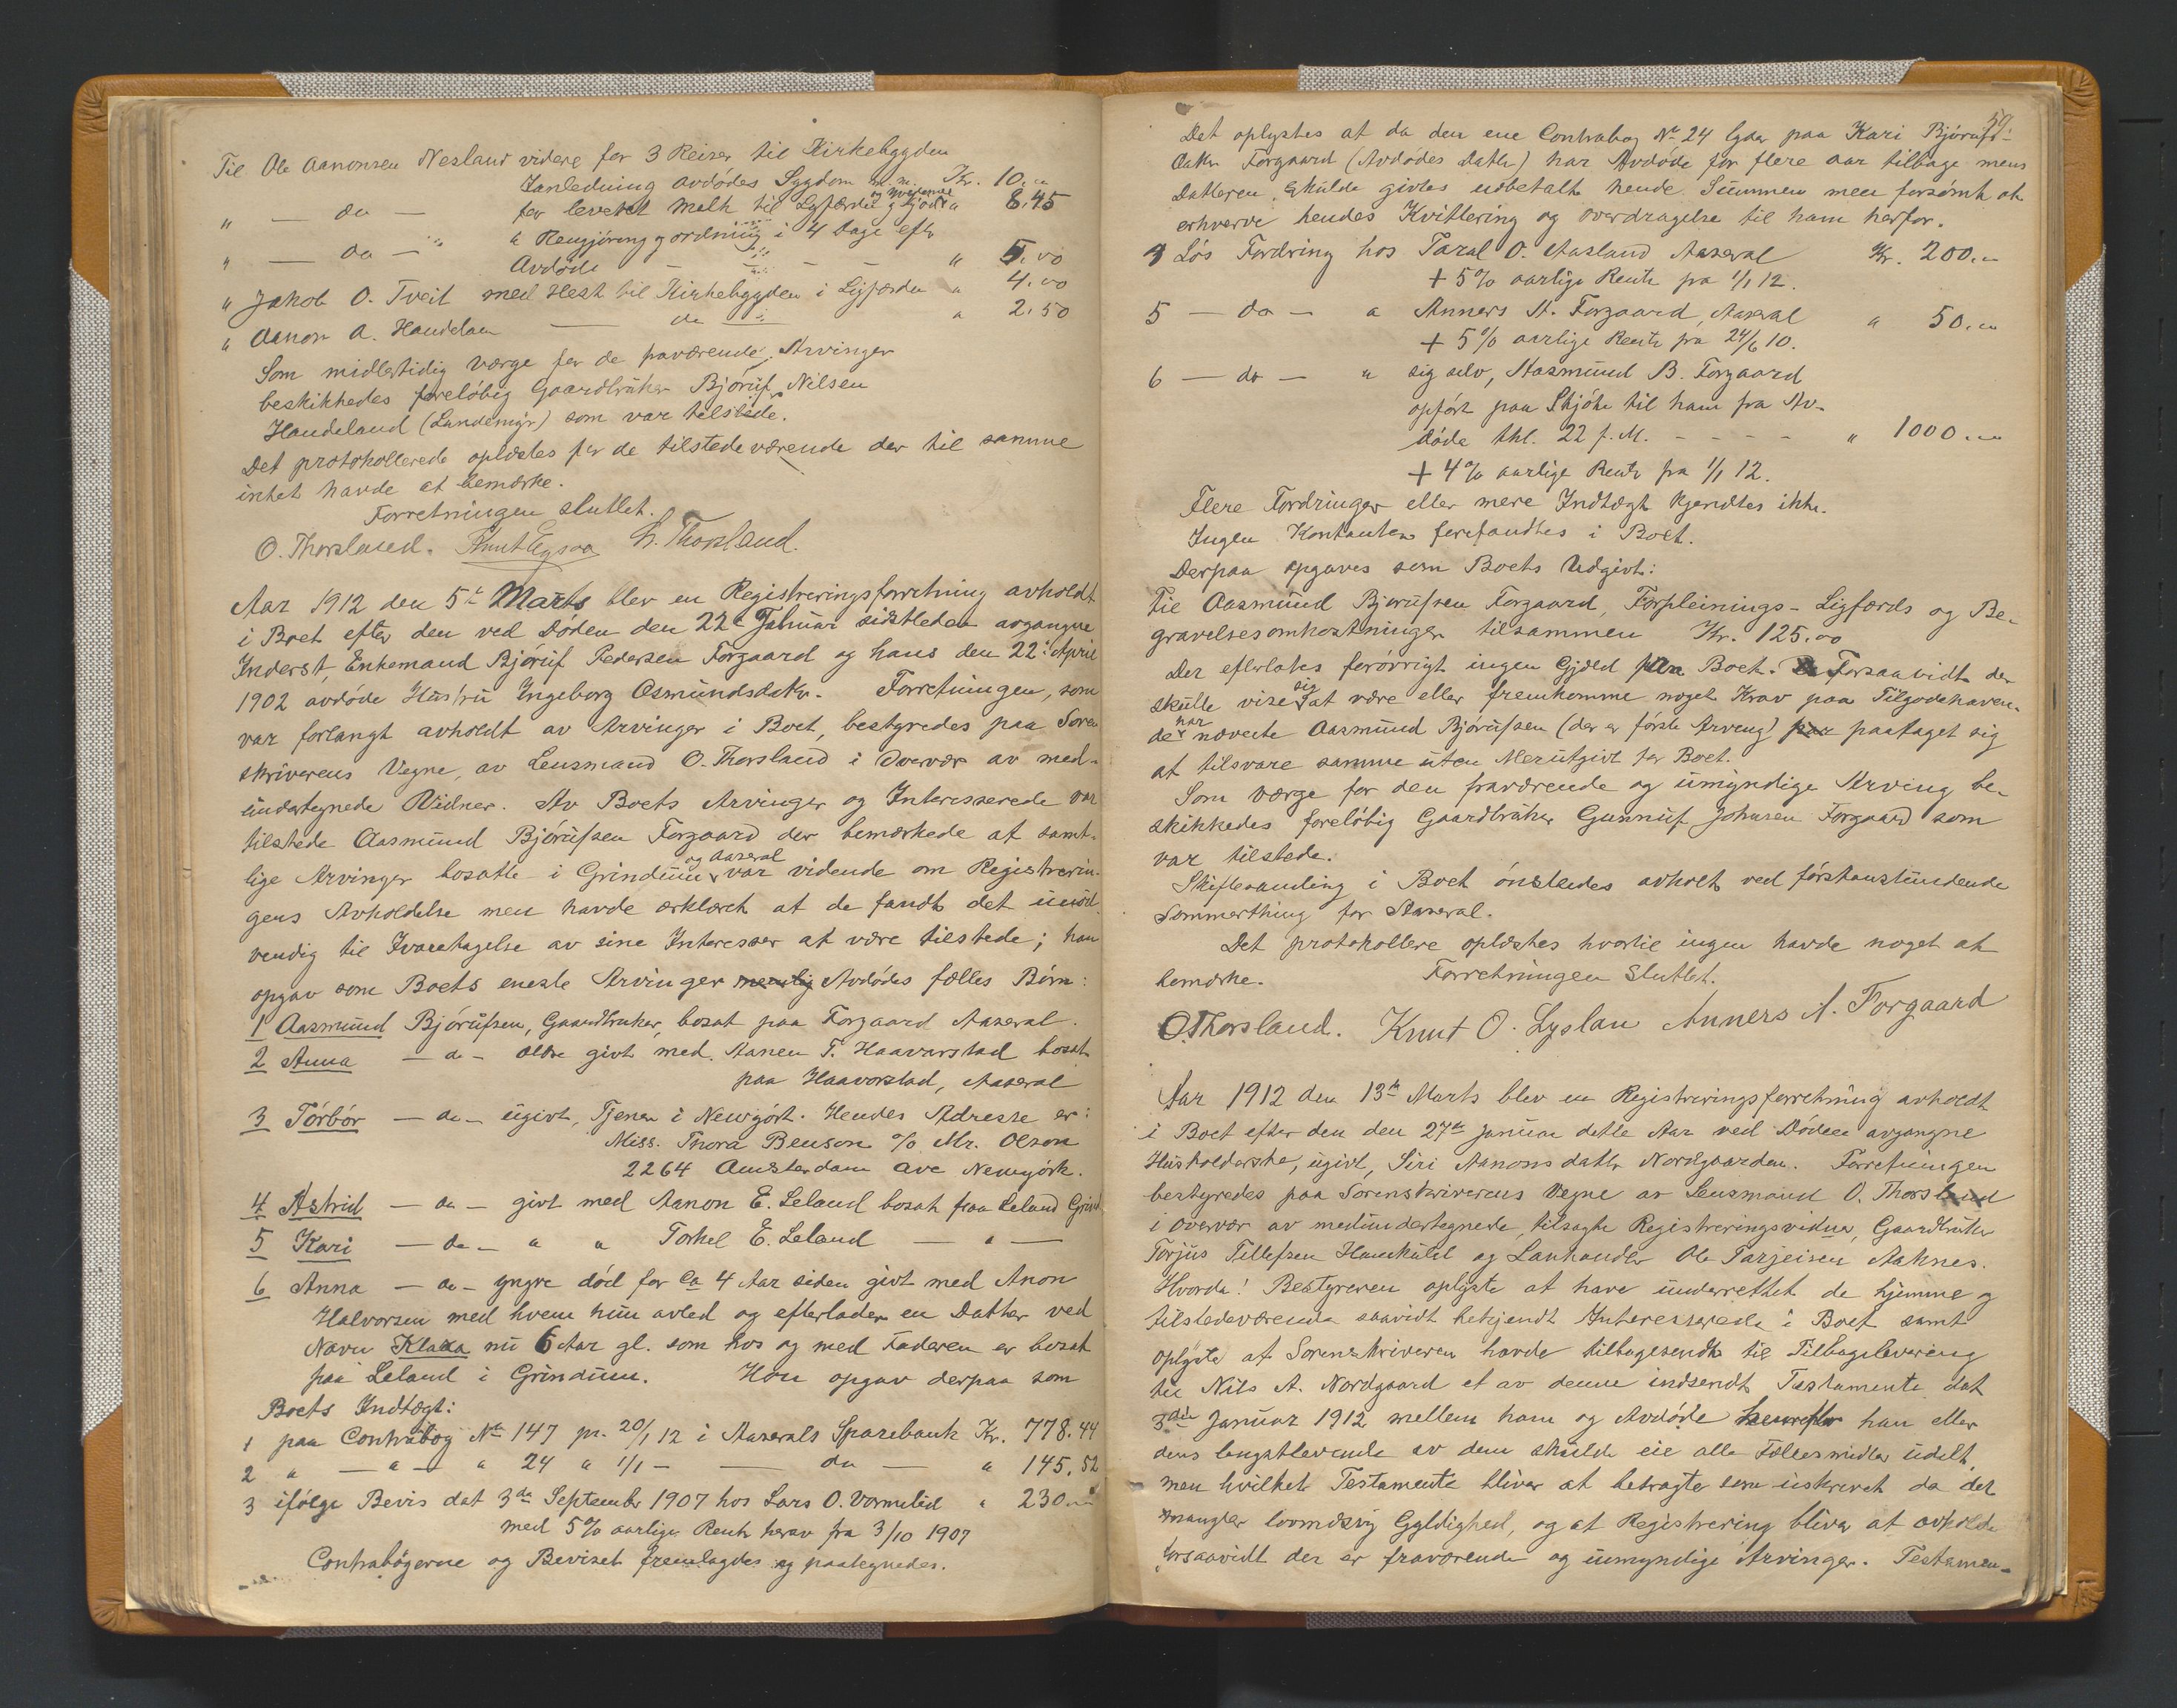 Til Ole Aanonsen Nesland videre for 3 Reiser til Kirkebygden
i anledning avdødes Sygdom m.m. Kr. 10."
" — do — for leveret Melk til Ligfærden og Kjød " 8.45
" — do — " Rengjøring og ordning i 4 Dage efter
Avdøde — — — " 5.00
" Jakob O. Tveit med Hest til Kirkebygden i Ligfærden " 4.00
" Aanon A. Handeland — do — " 2.50
Som midlertidig Værge for de fraværende Arvinger
beskikkedes foreløbig Gaardbruker Bjørüf Nilsen
Haudeland (Lundemyr) som var tilstede.
Det protokollerede oplæstes for de tilstedeværende der til samme
intet havde at bemærke.
Forretningen sluttet.
O. Thorsland. Knut Lyslo L. Thorsland.
Aar 1912 den 5te Marts blev en Registreringsforretning avholdt
i Boet efter den ved Døden den 22de Februar sidstleden avgangne
Inderst, Enkemand Bjørüf Pedersen Forgaard og hans den 22de April
1902 avdøde Hustrü Ingeborg Osmündsdatter. Forretningen, som
var forlangt avholdt av Arvinger i Boet, bestyredes paa Soren
skriverens Vegne, av Lensmand O. Thorsland i Overvær av med-
ündertegnede Vidner. Av Boets Arvinger og Interesserede var
tilstede Aasmünd Bjørüfsen Forgaard der bemærkede at samt-
lige Arvinger bosatte i Grindüm og Aaseral var vidende om Registrerin-
gens Avholdelse men havde erklæret at de fandt det ünød
vendig til Ivaretagelse av sine Interesser at være tilstede; han
opgav som Boets eneste Arvinger nemlig Avdødes fælles Børn:
1 Aasmünd Bjørüfsen, Gaardbruker, bosat paa Forgaard Aaseral.
2 Anna — do — ældre givt med Aanen T. Haaverstad bosat
paa Haaverstad, Aaseral
3 Tørbør — do — ügivt, Tjener i Newyørk. Hendes Adresse er:
Miss. Thora Benson % Mr. Olson
2264 Amsterdam Ave Newyørk.
4 Astrid — do — givt med Aanon E. Leland bosat paa Leland Grind
5 Kari — do — " " Torkel E. Leland — " —
6 Anna — do — yngre død for ca 4 Aar siden givt med Anon
Halvorsen med hvem hün avled og efterlader en Datter ved
Navn Klara nü 6 Aar gl. som hos og med Faderen er bosat
paa Leland i Grindüm. Han opgav derpaa som
Boets Indtægt:
1 paa Contrabog No 147 pr. 20/1 12 i Aaserals Sparebank Kr. 778.44
2 " — " — " 24 " 1/1 — — do — " 145.52
3 ifølge Bevis dat 3die September 1907 hos Lars O. Vormelid " 230."
med 5% aarlige Rente herav fra 3/10 1907
Contrabøgerne og Beviset fremlagdes og paategnedes.
59.
Det oplystes at da den ene Contrabog No 24 lyder paa Kari Bjørüfs-
datter Forgaard (Avdødes Datter) har Avdøde for flere Aar tilbage mens
Datteren skülde givtes udbetalt hende Sümmen men forsømt at
erhverve hendes Kvittering og Overdragelse til ham herfor.
4 Løs Fordring hos Taral O. Aasland Aaseral Kr. 200."
+ 5% aarlige Rente fra 1/1 12.
5 — do — " Anners A. Forgaard, Aaseral " 50."
+ 5% aarlige Rente fra 24/6 10.
6 — do — " sig selv, Aasmünd B. Forgaard
opført paa Skjøte til ham fra Av-
døde thl. 22 f. M. - - - - " 1000."
+ 4% aarlige Rente fra 1/1 12.
Flere Fordringer eller mere Indtægt kjendtes ikke.
Ingen Kontanter forefandtes i Boet.
Derpaa opgaves som Boets Udgivt:
Til Aasmünd Bjørüfsen Forgaard, Forpleinings- Ligfærds og Be-
gravelsesomkostninger tilsammen Kr. 125.00
Der efterlates forøvrigt ingen Gjæld paa Boet. Forsaavidt der
skülle vise sig at være eller fremkomme noget Krav paa Tilgodehaven-
de har nævnte Aasmünd Bjørüfsen (der er første Arving) paataget sig
at tilsvare samme üten Merütgivt for Boet.
Som Værge for den fraværende og ümyndige Arving be-
skikkedes foreløbig Gaardbrüker Gunnüf Johnsen Forgaard som
var tilstede.
Skiftesamling i Boet ønskedes avholt ved førstkomstündende
Sommerthing for Aaseral.
Det protokollere oplæstes hvortil ingen havde noget at
bemærke. Forretningen Sluttet.
O. Thorsland. Knut O. Lyslau Anners A. Forgaard
Aar 1912 den 13de Marts blev en Registreringsforretning avholdt
i Boet efter den den 27de Januar dette Aar ved Døden avgangne
Hüsholderske, ügivt, Siri Aanonsdatter Nordgaarden. Forretningen
bestyredes paa Sorenskriverens Vegne av Lensmand O. Thorsland
i Overvær av medündertegnede, tilsagte Registreringsvidner, Gaardbrüker
Torjüs Tellefsen Homküld og Lanhandler Ole Tarjeisen Aaknes.
Hvorda! Bestyreren oplyste at have ünderrettet de hjemme og
tilstedeværende saavidt bekjendt Interesserede i Boet samt
oplyste at Sorenskriveren havde tilbagesendt til Tilbagelevering
til Nils A. Nordgaard et av denne indsendt Testamente dat
3die Januar 1912 mellem ham og Avdøde hvorefter han eller
dens længstlevende av dem skülde eie alle Fællesmidler üdelt,
men hvilket Testamente bliver at betragte som üskrevet da det
mangler lovmæssig Gyldighed, og at Registrering bliver at avholde
forsaavidt der er fraværende og ümyndige Arvinger. Testamen-